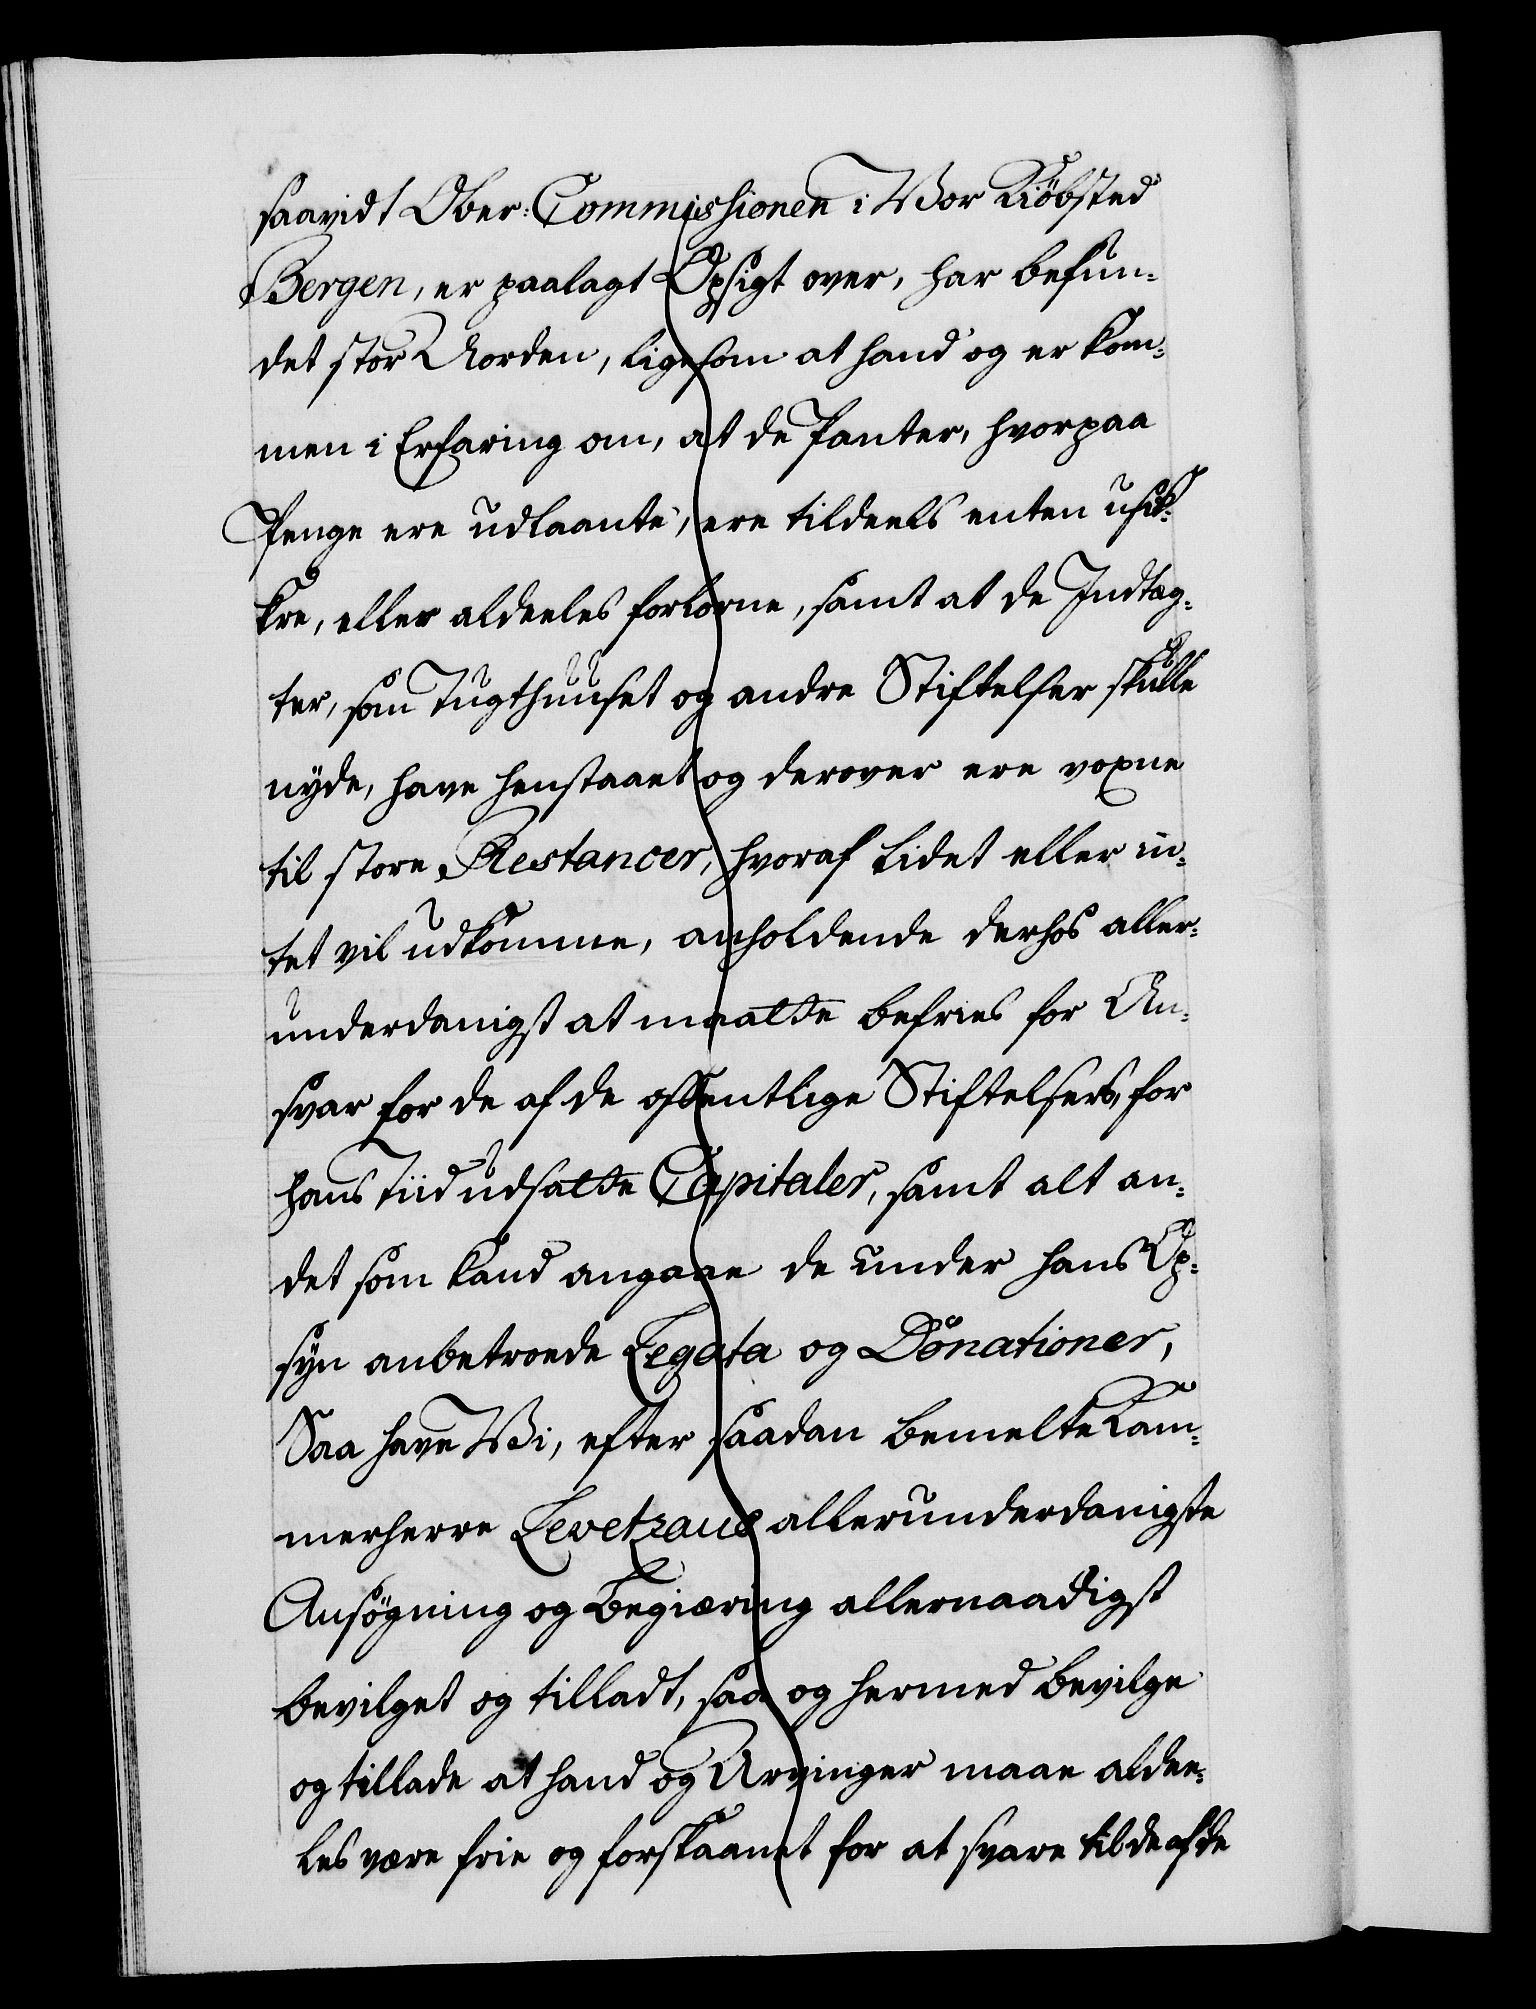 saavidt Ober-Commissionen i Vor Kiöbsted
Bergen, er paalagt Opsigt over, har befun-
det stor Uorden, ligesom at hand og er kom-
men i Erfaring om, at de Panter, hvorpaa
Penge ere udlaante, ere tildeels enten usik-
kre, eller aldeeles forlorne, samt at de Indtæg-
ter, som Tugthuuset og andre Stiftelser skulle
nyde, have henstaaet og derover ere voxne
til store Restancer, hvoraf lidet eller in-
tet vil udkomme, anholdende derhos aller-
underdanigst at maatte befries for An-
svar for de af de offentlige Stiftelsers, for
hans Tiid udsatte Capitaler, samt alt an-
det som kand angaae de under hans Op-
syn anbetroede Legata og Donationer,
Saa have Vi, efter saadan bemelte Kam-
merherre Levetzaus allerunderdanigste
Ansögning og Begiæring allernaadigst
bevilget og tilladt, saa og hermed bevilge
og tillade at hand og Arvinger maae aldee-
les være frie og forskaanet for at svare til de af de